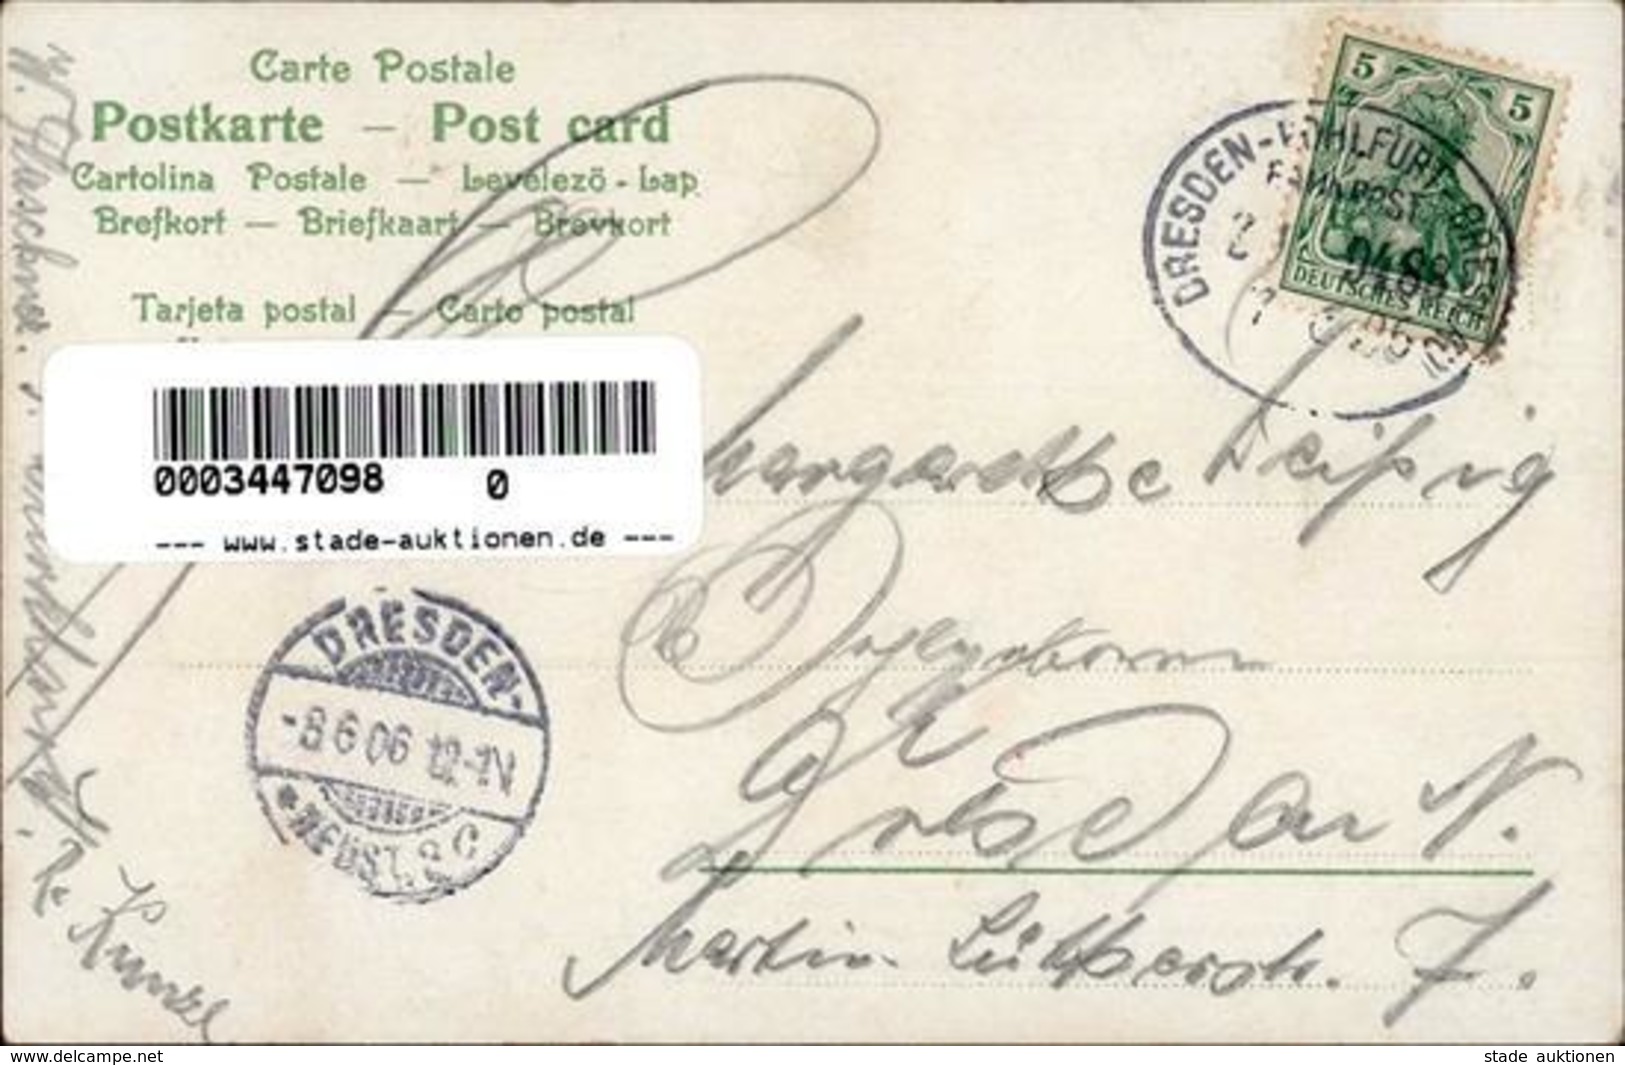 Carte Postale
Postkarte — Post card
Cartolina Postale — Levelezö-Lap
Brefkort — Briefkaart — Brevkort
Tarjeta postal — Carto postal
5 5
DEUTSCHES REICH
DRESDEN-KOHLFURT-BRES
BAHNPOST
0003447098 0
--- www.stade-auktionen.de ---
Margarethe Leipzig
DRESDEN-
-8 6 06 12-1N
* NEUST. 8 C
Dresden N.
Martin Lütherstr. 7.
Kunze
www.delcampe.net
stade auktionen